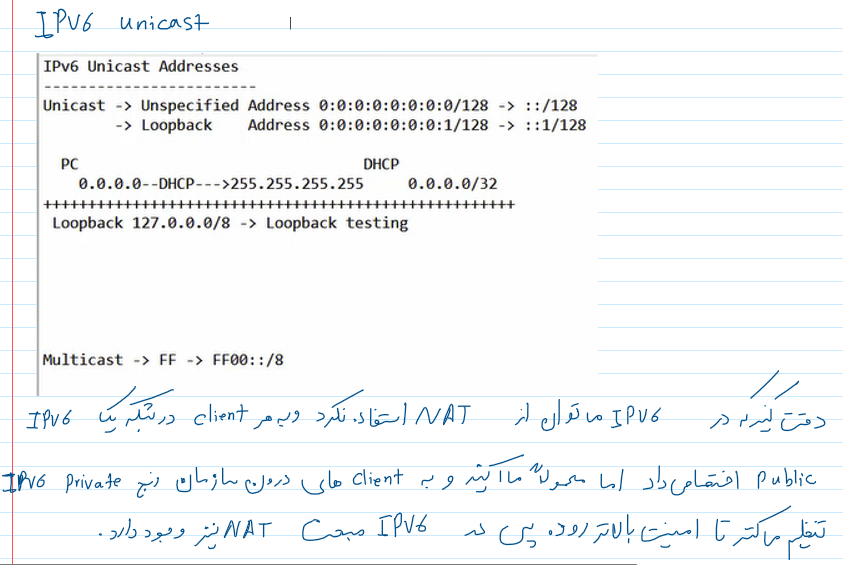 IPV6 unicast
IPv6 Unicast Addresses
------------------------
Unicast -> Unspecified Address 0:0:0:0:0:0:0:0/128 -> ::/128
-> Loopback Address 0:0:0:0:0:0:0:1/128 -> ::1/128
PC DHCP
0.0.0.0--DHCP--->255.255.255.255 0.0.0.0/32
+++++++++++++++++++++++++++++++++++++++++++++++++++++
Loopback 127.0.0.0/8 -> Loopback testing
Multicast -> FF -> FF00::/8
دقت کنید که در IPV6 می توان از NAT استفاده نکرد و به هر client در شبکه یک IPV6
Public اختصاص داد اما معمولا و به client های درون سازمان رنج IPV6 private
تنظیم می کنند تا امنیت بالاتر رود. پس در IPV6 مبحث NAT نیز وجود دارد.